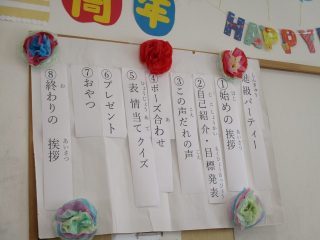 周年
HAPPY
進級パーティー
①始めの挨拶
②自己紹介・目標発表
③この声だれの声
④ポーズ合わせ
⑤表情当てクイズ
⑥プレゼント
⑦おやつ
⑧終わりの挨拶